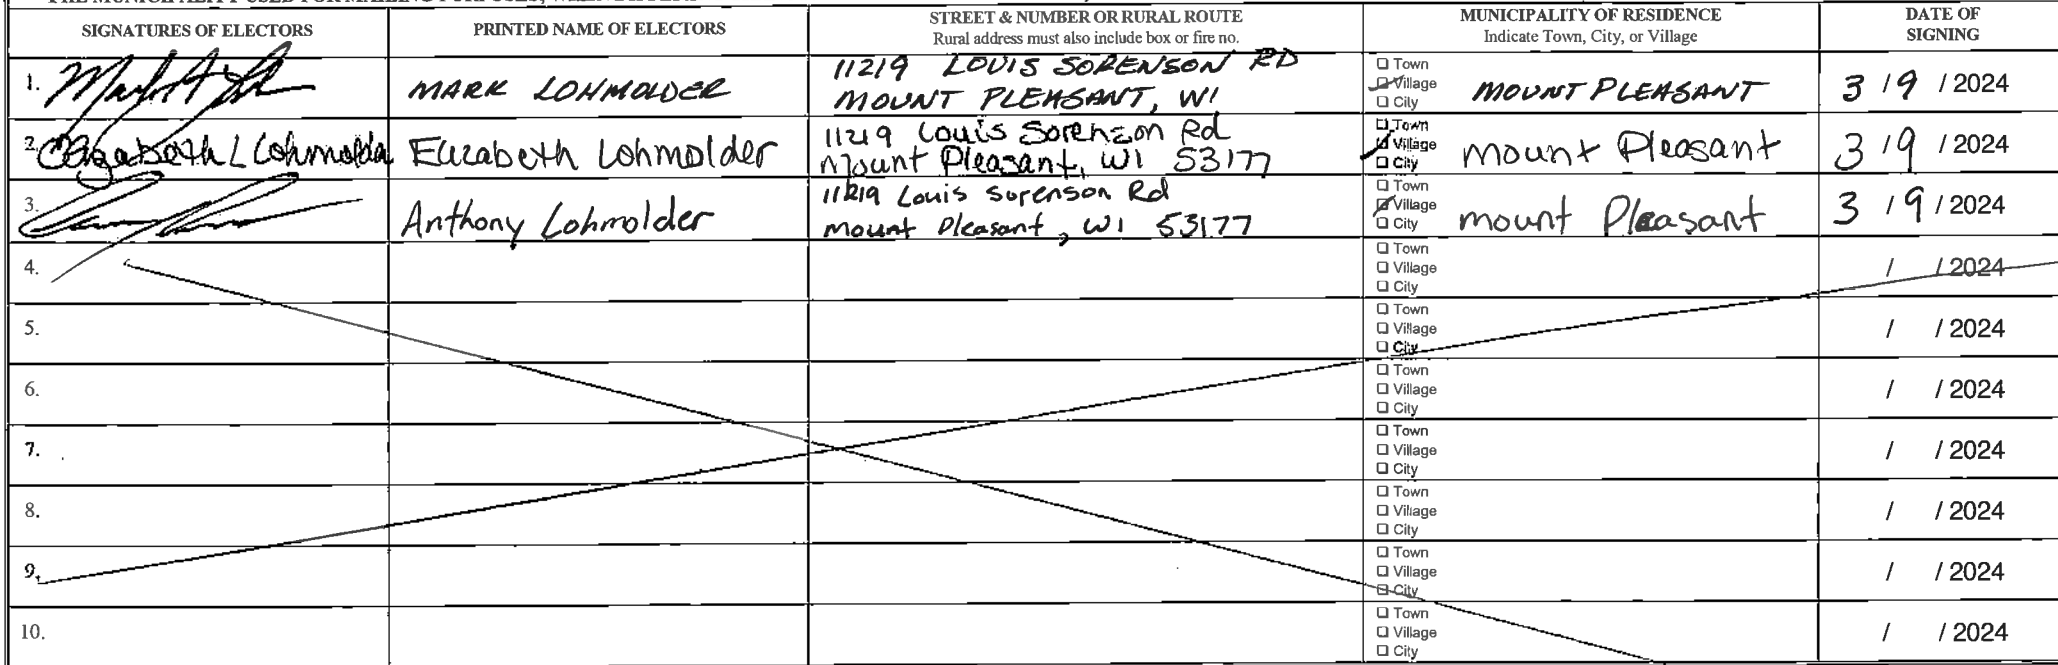 SIGNATURES OF ELECTORS
PRINTED NAME OF ELECTORS
STREET & NUMBER OR RURAL ROUTE
Rural address must also include box or fire no.
MUNICIPALITY OF RESIDENCE
Indicate Town, City, or Village
DATE OF
SIGNING
1.
MARK LOHMOLDER
11219 LOUIS SORENSON RD
MOUNT PLEASANT, WI
Town
Village
City
MOUNT PLEASANT
3 / 9 / 2024
2.
Elizabeth L Lohmolder
Elizabeth Lohmolder
11219 Louis Sorenson Rd
Mount Pleasant, WI 53177
Town
Village
City
Mount Pleasant
3 / 9 / 2024
3.
Anthony Lohmolder
11219 Louis Sorenson Rd
Mount Pleasant, WI 53177
Town
Village
City
mount Pleasant
3 / 9 / 2024
4.
Town
Village
City
/ / 2024
5.
Town
Village
City
/ / 2024
6.
Town
Village
City
/ / 2024
7.
Town
Village
City
/ / 2024
8.
Town
Village
City
/ / 2024
9.
Town
Village
City
/ / 2024
10.
Town
Village
City
/ / 2024